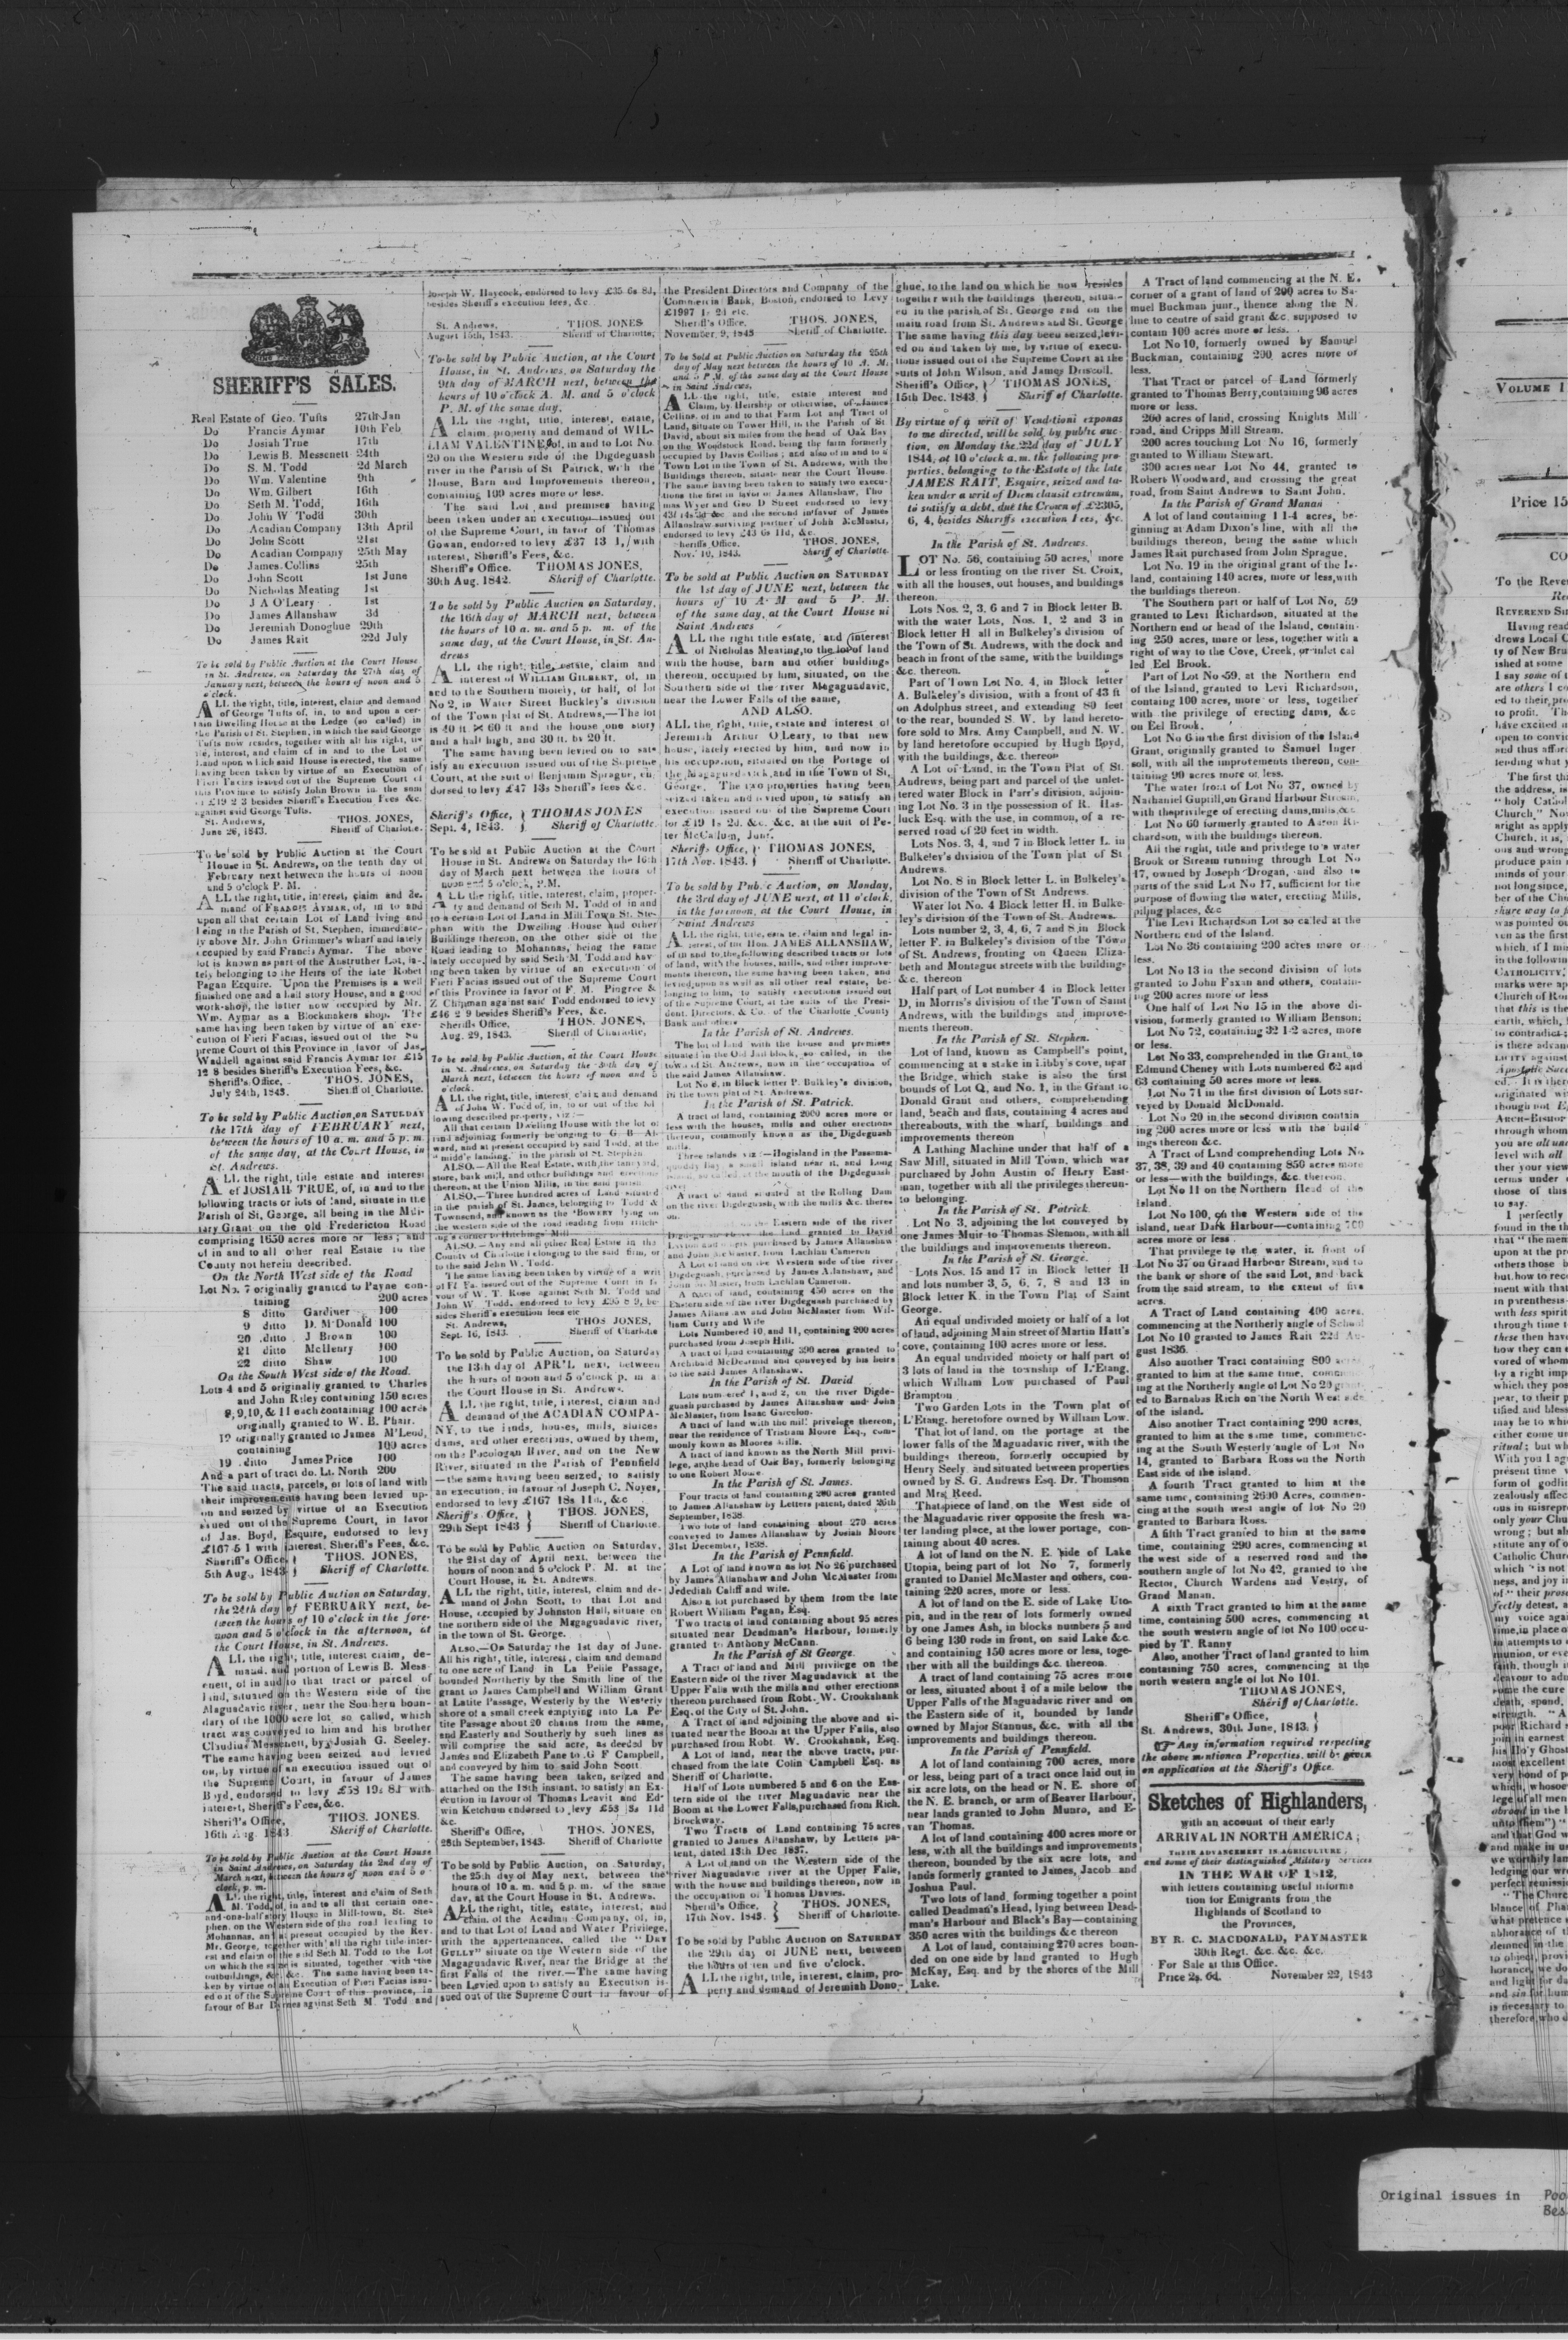 SHERIFF'S SALES.
Real Estate of Geo. Tufts 27th Jan
Do Francis Aymar 10th Feb
Do Josiah True 17th
Do Lewis B. Messenett 24th
Do S. M. Todd 2d March
Do Wm. Valentine 9th
Do Wm. Gilbert 16th
Do Seth M. Todd, 16th
Do John W Todd 30th
Do Acadian Company 13th April
Do John Scott 21st
Do Acadian Company 25th May
Do James Collins 25th
Do John Scott 1st June
Do Nicholas Meating 1st
Do J A O'Leary 1st
Do James Allanshaw 3d
Do Jeremiah Donoghue 29th
Do James Rait 22d July
To be sold by Public Auction at the Court House
in St. Andrews, on Saturday the 27th day of
January next, between the hours of noon and 5
o'clock.
ALL the right, title, interest, claim and demand
of George Tufts of, in, to and upon a cer-
tain Dwelling House at the Ledge (so called) in
the Parish of St. Stephen, in which the said George
Tufts now resides, together with all his right,
interest, and claim of in and to the Lot of
Land upon which said House is erected, the same
having been taken by virtue of an Execution of
Fieri Facias issued out of the Supreme Court of
this Province to satisfy John Brown in the sum
of £19 2 3 besides Sheriff's Execution Fees &c.
against said George Tufts.
St. Andrews, THOS. JONES,
June 26, 1843. Sheriff of Charlotte.
To be sold by Public Auction at the Court
House in St. Andrews, on the tenth day of
February next between the hours of noon
and 5 o'clock P. M.
ALL the right, title, interest, claim and de-
mand of FRANCIS AYMAR, of, in to and
upon all that certain Lot of Land lying and
being in the Parish of St. Stephen, immediate-
ly above Mr. John Grimmer's wharf and lately
occupied by said Francis Aymar. The above
lot is known as part of the Anstruther Lot, la-
tely belonging to the Heirs of the late Robet
Pagan Esquire. Upon the Premises is a well
finished one and a half story House, and a good
work-shop, the latter now occupied by Mr.
Wm. Aymar as a Blockmakers shop. The
same having been taken by virtue of an exe-
cution of Fieri Facias, issued out of the Su
preme Court of this Province in favor of Jas.
Waddell against said Francis Aymar for £15
12 8 besides Sheriff's Execution Fees, &c.
Sheriff's Office, THOS. JONES,
July 24th, 1843. Sheriff of Charlotte.
To be sold by Public Auction, on SATURDAY
the 17th day of FEBRUARY next,
between the hours of 10 a. m. and 5 p. m.
of the same day, at the Court House, in
St. Andrews.
ALL the right, title estate and interest
of JOSIAH TRUE, of, in and to the
following tracts or lots of land, situate in the
Parish of St. George, all being in the Mili-
tary Grant on the old Fredericton Road
comprising 1650 acres more or less; and
of in and to all other real Estate in the
County not herein described.
On the North West side of the Road
Lot No. 7 originally granted to Payne con-
taining 200 acres
8 ditto Gardiner 100
9 ditto D. M'Donald 100
20 ditto J Brown 100
21 ditto McHenry 100
22 ditto Shaw 100
On the South West side of the Road.
Lots 4 and 5 originally granted to Charles
and John Riley containing 150 acres
8, 9, 10, & 11 each containing 100 acres
originally granted to W. B. Phair.
12 originally granted to James M'Leod,
containing 100 acres
19 ditto James Price 100
And a part of tract do. Lt. North 200
The said tracts, parcels, or lots of land with
their improvements having been levied up-
on and seized by virtue of an Execution
issued out of the Supreme Court, in favor
of Jas. Boyd, Esquire, endorsed to levy
£167 5 1 with interest, Sheriff's Fees, &c.
Sheriff's Office THOS. JONES,
5th Aug., 1843 Sheriff of Charlotte.
To be sold by Public Auction on Saturday,
the 24th day of FEBRUARY next, be-
tween the hours of 10 o'clock in the fore-
noon and 5 o'clock in the afternoon, at
the Court House, in St. Andrews.
ALL the right, title, interest claim, de-
mand, and portion of Lewis B. Mess-
enett, of in and to that tract or parcel of
land, situated on the Western side of the
Maguadavic river, near the Southern boun-
dary of the 1000 acre lot so called, which
tract was conveyed to him and his brother
Claudius Messenett, by Josiah G. Seeley.
The same having been seized and levied
on, by virtue of an execution issued out of
the Supreme Court, in favour of James
Boyd, endorsed to levy £58 19s 8d with
interest, Sheriff's Fees, &c.
THOS. JONES.
Sheriff's Office,
16th Aug. 1843. Sheriff of Charlotte.
To be sold by Public Auction at the Court House
in Saint Andrews, on Saturday the 2nd day of
March next, between the hours of noon and 5 o'
clock, p. m.
ALL the right, title, interest and claim of Seth
M. Todd, of, in and to all that certain one-
and-one-half story House in Mill-town, St. Ste-
phen, on the Western side of the road leading to
Mohannas, an at present occupied by the Rev.
Mr. George, together with all the right title inter-
est and claim of the said Seth M. Todd to the Lot
on which the same is situated, together with the
outbuildings, &c. &c. The same having been ta-
ken by virtue of an Execution of Fieri Facias issu-
ed out of the Supreme Court of this province, in
favour of Bar against Seth M. Todd and
Joseph W. Haycock, endorsed to levy £35 6s 8d,
besides Sheriff's execution fees, &c
St. Andrews, THOS. JONES
August 15th, 1843. Sheriff of Charlotte,
To be sold by Public Auction, at the Court
House, in St. Andrews, on Saturday the
9th day of MARCH next, between the
hours of 10 o'clock A. M. and 5 o'clock
P. M. of the same day.
ALL the right, title, interest, estate,
claim property and demand of WIL-
LIAM VALENTINE, of, in and to Lot No.
20 on the Western side of the Digdeguash
river in the Parish of St Patrick, with the
House, Barn and Improvements thereon,
containing 100 acres more or less.
The said Lot and premises having
been taken under an execution issued out
of the Supreme Court, in favor of Thomas
Gowan, endorsed to levy £37 13 1, with
interest, Sheriff's Fees, &c.
Sheriff's Office. THOMAS JONES,
30th Aug. 1842. Sheriff of Charlotte.
To be sold by Public Auction on Saturday,
the 16th day of MARCH next, between
the hours of 10 a. m. and 5 p. m. of the
same day, at the Court House, in St. An-
drews
ALL the right, title, estate, claim and
interest of WILLIAM GILBERT, of, in
and to the Southern moiety, or half, of lot
No 2, in Water Street Buckley's division
of the Town plat of St. Andrews,—The lot
is 40 ft × 60 ft and the house one story
and a half high, and 30 ft. by 20 ft.
The same having been levied on to sat-
isfy an execution issued out of the Supreme
Court, at the suit of Benjamin Sprague, en-
dorsed to levy £47 13s Sheriff's fees &c.
Sheriff's Office, THOMAS JONES
Sept. 4, 1843. Sheriff of Charlotte.
To be sold at Public Auction at the Court
House in St. Andrews on Saturday the 16th
day of March next between the hours of
noon and 5 o'clock, P.M.
ALL the right, title, interest, claim, proper-
ty and demand of Seth M. Todd of in and
to a certain Lot of Land in Mill Town St. Ste-
phan with the Dwelling House and other
Buildings thereon, on the other side of the
Road leading to Mohannas, being the same
lately occupied by said Seth M. Todd and hav-
ing been taken by virtue of an execution of
Fieri Facias issued out of the Supreme Court
of this Province in favor of F. M. Pingree &
Z Chipman against said Todd endorsed to levy
£46 2 9 besides Sheriff's Fees, &c.
Sheriffs Office, THOS. JONES,
Aug. 29, 1843. Sheriff of Charlotte,
To be sold, by Public Auction, at the Court House
in St. Andrews, on Saturday the 30th day of
March next, between the hours of noon and 5
o'clock.
ALL the right, title, interest, claim and demand
of John W. Todd of, in, to or out of the fol
lowing described property, viz:—
All that certain Dwelling House with the lot of
land adjoining formerly belonging to G. B. At-
ward, and at present occupied by said Todd, at the
"middle landing," in the parish of St. Stephen
ALSO.—All the Real Estate, with the tanyard,
store, bark mill, and other buildings and erections
thereon, at the Union Mills, in the said parish.
ALSO.—Three hundred acres of Land situated
in the parish of St. James, belonging to Todd &
Townsend, and known as the 'BOWERY' lying on
the western side of the road leading from Hitch-
ing's corner to Hitchings' Mill
ALSO.—Any and all other Real Estate in the
County of Charlotte belonging to the said firm, or
to the said John W. Todd.
The same having been taken by virtue of a writ
of Fi Fa. issued out of the Supreme Court in fa
vour of W. T. Rose against Seth M. Todd and
John W. Todd, endorsed to levy £95 8 9, be-
sides Sheriff's execution fees etc
St. Andrews, THOS JONES,
Sept. 16, 1843. Sheriff of Charlotte
To be sold by Public Auction, on Saturday
the 13th day of APRIL next, between
the hours of noon and 5 o'clock p. m. at
the Court House in St. Andrews.
ALL the right, title, interest, claim and
demand of the ACADIAN COMPA-
NY, to the lands, houses, mills, sluices
dams, and other erections, owned by them,
on the Pocologan River, and on the New
River, situated in the Parish of Pennfield
—the same having been seized, to satisfy
an execution, in favour of Joseph C. Noyes,
endorsed to levy £167 18s 11d., &c
Sheriff's Office, THOS. JONES,
29th Sept 1843 Sheriff of Charlotte.
To be sold by Public Auction on Saturday,
the 21st day of April next, between the
hours of noon and 5 o'clock P. M. at the
Court House, in St. Andrews.
ALL the right, title, interest, claim and de-
mand of John Scott, to that Lot and
House, occupied by Johnston Hall, situate on
the northern side of the Magaguadavic river,
in the town of St. George.
ALSO,—On Saturday the 1st day of June.
All his right, title, interest, claim and demand
to one acre of Land in La Petite Passage,
bounded Northerly by the Smith line of the
grant to James Campbell and William Grant
at Latite Passage, Westerly by the Westerly
shore of a small creek emptying into La Pe-
tite Passage about 20 chains from the same,
and Easterly and Southerly by such lines as
will comprise the said acre, as deeded by
James and Elizabeth Pane to G F Campbell,
and conveyed by him to said John Scott.
The same having been taken, seized and
attached on the 18th instant, to satisfy an Ex-
ecution in favour of Thomas Leavit and Ed-
win Ketchum endorsed to levy £53 8s 11d
&c.
Sheriff's Office, THOS. JONES,
28th September, 1843. Sheriff of Charlotte
To be sold by Public Auction, on Saturday,
the 25th day of May next, between the
hours of 10 a. m. and 5 p. m. of the same
day, at the Court House in St. Andrews.
ALL the right, title, estate, interest, and
claim, of the Acadian Company, of, in,
and to that Lot of Land and Water Privilege,
with the appertenances, called the "DRY
GULLY" situate on the Western side of the
Magaguadavic River, near the Bridge at the
first Falls of the river.—The same having
been Levied upon to satisfy an Execution is-
sued out of the Supreme Court in favour of
the President Directors and Company of the
Commercial Bank, Boston, endorsed to Levy
£1997 1s 2d etc.
Sheriff's Office, THOS. JONES,
November, 9, 1843 Sheriff of Charlotte.
To be Sold at Public Auction on Saturday the 25th
day of May next between the hours of 10 A. M.
and 5 P M. of the same day at the Court House
in Saint Andrews,
ALL the right, title, estate interest and
Claim, by Heirship or otherwise, of James
Collins, of in and to that Farm Lot and Tract of
Land, situate on Tower Hill, in the Parish of St
David, about six miles from the head of Oak Bay
on the Woodstock Road, being the farm formerly
occupied by Davis Collins; and also of in and to a
Town Lot in the Town of St. Andrews, with the
Buildings thereon, situate near the Court House.
The same having been taken to satisfy two execu-
tions the first in favor of James Allanshaw, Tho
mas Wyer and Geo D Street endorsed to levy
43l 14s 2d &c and the second in favor of James
Allanshaw surviving partner of John McMaster,
endorsed to levy £43 6s 11d, &c.
Sheriffs Office, THOS. JONES,
Nov. 10, 1843. Sheriff of Charlotte.
To be sold at Public Auction on SATURDAY
the 1st day of JUNE next, between the
hours of 10 A. M and 5 P. M.
of the same day, at the Court House ni
Saint Andrews
ALL the right title estate, and interest
of Nicholas Meating, to the lot of land
with the house, barn and other buildings
thereon, occupied by him, situated, on the
Southern side of the river Magaguadavic,
near the Lower Falls of the same,
AND ALSO.
ALL the right, title, estate and interest of
Jeremiah Arthur O'Leary, to that new
house, lately erected by him, and now in
his occupation, situated on the Portage of
the Magaguadavick, and in the Town of St.
George. The two properties having been
seized taken and levied upon, to satisfy an
execution issued out of the Supreme Court
for £49 1s 2d. &c. &c. at the suit of Pe-
ter McCallum, Junr.
Sheriffs Office, THOMAS JONES,
17th Nov. 1843. Sheriff of Charlotte.
To be sold by Public Auction, on Monday,
the 3rd day of JUNE next, at 11 o'clock,
in the forenoon, at the Court House, in
Saint Andrews
ALL the right, title, estate, claim and legal in-
terest, of the Hon. JAMES ALLANSHAW,
of in and to the following described tracts or lots
of land, with the houses, mills, and other improve-
ments thereon, the same having been taken, and
levied upon as well as all other real estate, be-
longing to him, to satisfy executions issued out
of the Supreme Court, at the suits of the Presi-
dent. Directors, & Co. of the Charlotte County
Bank and others
In the Parish of St. Andrews.
The lot of land with the house and premises
situated in the Old Jail block, so called, in the
town of St. Andrews, now in the occupation of
the said James Allanshaw.
Lot No 6, in Block letter P. Bulkley's division,
in the town plat of St. Andrews.
In the Parish of St. Patrick.
A tract of land, containing 2000 acres more or
less with the houses, mills and other erections
thereon, commonly known as the Digdeguash
mills.
Three islands viz:—Hogisland in the Passama-
quoddy Bay, a small island near it, and Long
Island, so called, at the mouth of the Digdeguash
river.
A tract of land situated at the Rolling Dam
on the river Digdeguash, with the mills &c. there
on.
on the Eastern side of the river
the land granted to David
purchased by James Allanshaw
and John McMaster, from Lachlan Cameron
A Lot of land on the Western side of the river
Digdeguash, purchased by James Allanshaw, and
John McMaster, from Lachlan Cameron.
A tract of land, containing 450 acres on the
Eastern side of the river Digdeguash purchased by
James Allanshaw and John McMaster from Wil-
liam Curry and Wife
Lots Numbered 10, and 11, containing 200 acres
purchased from Joseph Hill.
A tract of land containing 390 acres granted to
Archibald McDearmid and conveyed by his heirs
to the said James Allanshaw.
In the Parish of St. David
Lots numbered 1, and 2, on the river Digde-
guash purchased by James Allanshaw and John
McMaster, from Isaac Garcelon.
A tract of land with the mill privelege thereon,
near the residence of Tristram Moore Esq., com-
monly kown as Moores Mills.
A tract of land known as the North Mill privi-
lege, at the head of Oak Bay, formerly belonging
to one Robert Mowe.
In the Parish of St. James.
Four tracts of land containing 200 acres granted
to James Allanshaw by Letters patent, dated 26th
September, 1838.
Two lots of land containing about 270 acres
conveyed to James Allanshaw by Josiah Moore
31st December, 1838.
In the Parish of Pennfield.
A Lot of land known as lot No 26 purchased
by James Allanshaw and John McMaster from
Jedediah Califf and wife.
Also a lot purchased by them from the late
Robert William Pagan, Esq.
Two tracts of land containing about 95 acres
situated near Deadman's Harbour, formerly
granted to Anthony McCann.
In the Parish of St George.
A Tract of land and Mill privilege on the
Eastern side of the river Maguadavick at the
Upper Falls with the mills and other erections
thereon purchased from Robt. W. Crookshank
Esq. of the City of St. John.
A Tract of land adjoining the above and si-
tuated near the Boom at the Upper Falls, also
purchased from Robt W. Crookshank, Esq.
A Lot of land, near the above tracts, pur-
chased from the late Colin Campbell Esq. as
Sheriff of Charlotte.
Half of Lots numbered 5 and 6 on the Eas-
tern side of the river Maguadavic near the
Boom at the Lower Falls, purchased from Rich.
Brockway.
Two Tracts of Land containing 75 acres
granted to James Allanshaw, by Letters pa-
tent, dated 13th Dec 1837.
A Lot of land on the Western side of the
river Maguadavic river at the Upper Falls,
with the house and buildings thereon, now in
the occupation of Thomas Davies.
Sheriff's Office, THOS. JONES,
17th Nov. 1843. Sheriff of Charlotte.
To be sold by Public Auction on SATURDAY
the 29th day of JUNE next, between
the hours of ten and five o'clock.
ALL the right, title, interest, claim, pro-
perty and demand of Jeremiah Dono-
ghue, to the land on which he now resides
together with the buildings thereon, situa-
ed in the parish of St. George and on the
main road from St. Andrews and St. George
The same having this day been seized, levi-
ed on and taken by me, by virtue of execu-
tions issued out of the Supreme Court at the
suits of John Wilson, and James Driscoll.
Sheriff's Office, THOMAS JONES,
15th Dec. 1843. Sheriff of Charlotte.
By virtue of a writ of Venditioni exponas
to me directed, will be sold by public auc-
tion, on Monday the 22d day of JULY
1844, at 10 o'clock a. m. the following pro-
perties, belonging to the Estate of the late
JAMES RAIT, Esquire, seized and ta-
ken under a writ of Diem clausit extremum,
to satisfy a debt, due the Crown of £2305,
6, 4, besides Sheriffs execution Fees, &c.
In the Parish of St. Andrews.
LOT No. 56, containing 50 acres, more
or less fronting on the river St. Croix,
with all the houses, out houses, and buildings
thereon.
Lots Nos. 2, 3, 6 and 7 in Block letter B.
with the water Lots, Nos. 1, 2 and 3 in
Block letter H all in Bulkeley's division of
the Town of St. Andrews, with the dock and
beach in front of the same, with the buildings
&c. thereon.
Part of Town Lot No. 4, in Block letter
A. Bulkeley's division, with a front of 43 ft
on Adolphus street, and extending 80 feet
to the rear, bounded S. W. by land hereto-
fore sold to Mrs. Amy Campbell, and N. W.
by land heretofore occupied by Hugh Boyd,
with the buildings, &c. thereon
A Lot of Land, in the Town Plat of St.
Andrews, being part and parcel of the unlet-
tered water Block in Parr's division, adjoin-
ing Lot No. 3 in the possession of R. Has-
luck Esq. with the use, in common, of a re-
served road of 20 feet in width.
Lots Nos. 3, 4, and 7 in Block letter L. in
Bulkeley's division of the Town plat of St
Andrews.
Lot No. 8 in Block letter L. in Bulkeley's
division of the Town of St Andrews.
Water lot No. 4 Block letter H. in Bulke-
ley's division of the Town of St. Andrews.
Lots number 2, 3, 4, 6, 7 and 8 in Block
letter F. in Bulkeley's division of the Town
of St. Andrews, fronting on Queen Eliza-
beth and Montague streets with the buildings
&c. thereon
Half part of Lot number 4 in Block letter
D, in Morris's division of the Town of Saint
Andrews, with the buildings and improve-
ments thereon.
In the Parish of St. Stephen.
Lot of land, known as Campbell's point,
commencing at a stake in Libby's cove, near
the Bridge, which stake is also the first
bounds of Lot Q, and No. 1, in the Grant to
Donald Grant and others, comprehending
land, beach and flats, containing 4 acres and
thereabouts, with the wharf, buildings and
improvements thereon
A Lathing Machine under that half of a
Saw Mill, situated in Mill Town, which was
purchased by John Austin of Henry East-
man, together with all the privileges thereun-
to belonging.
In the Parish of St. Patrick.
Lot No. 3, adjoining the lot conveyed by
one James Muir to Thomas Slemon, with all
the buildings and improvements thereon.
In the Parish of St. George.
Lots Nos. 15 and 17 in Block letter H
and lots number 3, 5, 6, 7, 8 and 13 in
Block letter K. in the Town Plat of Saint
George.
An equal undivided moiety or half of a lot
of land, adjoining Main street of Martin Hatt's
cove, containing 103 acres more or less.
An equal undivided moiety or half part of
3 lots of land in the township of L'Etang,
which William Low purchased of Paul
Brampton
Two Garden Lots in the Town plat of
L'Etang, heretofore owned by William Low.
That lot of land, on the portage at the
lower falls of the Maguadavic river, with the
buildings thereon, formerly occupied by
Henry Seely, and situated between properties
owned by S. G. Andrews Esq. Dr. Thomson
and Mrs. Reed.
That piece of land, on the West side of
the Maguadavic river opposite the fresh wa-
ter landing place, at the lower portage, con-
taining about 40 acres.
A lot of land on the N. E. side of Lake
Utopia, being part of lot No 7, formerly
granted to Daniel McMaster and others, con-
taining 220 acres, more or less.
A lot of land on the E. side of Lake Uto-
pia, and in the rear of lots formerly owned
by one James Ash, in blocks numbers 5 and
6 being 130 rods in front, on said Lake &c.
and containing 150 acres more or less, toge-
ther with all the buildings &c. thereon.
A tract of land containing 75 acres more
or less, situated about ¾ of a mile below the
Upper Falls of the Maguadavic river and on
the Eastern side of it, bounded by lands
owned by Major Stannus, &c. with all the
improvements and buildings thereon.
In the Parish of Pennfield.
A lot of land containing 700 acres, more
or less, being part of a tract once laid out in
six acre lots, on the head or N. E. shore of
the N. E. branch, or arm of Beaver Harbour,
near lands granted to John Munro, and E-
van Thomas.
A lot of land containing 400 acres more or
less, with all the buildings and improvements
thereon, bounded by the six acre lots, and
lands formerly granted to James, Jacob and
Joshua Paul.
Two lots of land forming together a point
called Deadman's Head, lying between Dead-
man's Harbour and Black's Bay—containing
350 acres with the buildings &c thereon
A Lot of land, containing 270 acres boun-
ded on one side by land granted to Hugh
McKay, Esq. and by the shores of the Mill
Lake.
A Tract of land commencing at the N. E.
corner of a grant of land of 200 acres to Sa-
muel Buckman junr., thence along the N.
line to centre of said grant &c. supposed to
contain 100 acres more or less.
Lot No 10, formerly owned by Samuel
Buckman, containing 200 acres more or
less.
That Tract or parcel of Land formerly
granted to Thomas Berry, containing 96 acres
more or less.
200 acres of land, crossing Knights Mill
road, and Cripps Mill Stream.
200 acres touching Lot No 16, formerly
granted to William Stewart.
390 acres near Lot No 44, granted to
Robert Woodward, and crossing the great
road, from Saint Andrews to Saint John.
In the Parish of Grand Manan
A lot of land containing 1 1-4 acres, be-
ginning at Adam Dixon's line, with all the
buildings thereon, being the same which
James Rait purchased from John Sprague.
Lot No. 19 in the original grant of the Is-
land, containing 140 acres, more or less, with
the buildings thereon.
The Southern part or half of Lot No, 59
granted to Levi Richardson, situated at the
Northern end or head of the Island, contain-
ing 250 acres, more or less, together with a
right of way to the Cove, Creek, or inlet cal
led Eel Brook.
Part of Lot No 59, at the Northern end
of the Island, granted to Levi Richardson,
containg 100 acres, more or less, together
with the privilege of erecting dams, &c
on Eel Brook.
Lot No 6 in the first division of the Island
Grant, originally granted to Samuel Inger
soll, with all the improvements thereon, con-
taining 90 acres more or less.
The water front of Lot No 37, owned by
Nathaniel Guptill, on Grand Harbour Stream,
with the privilege of erecting dams, mills, &c
Lot No 60 formerly granted to Aaron Ri-
chardson, with the buildings thereon.
All the right, title and privilege to a water
Brook or Stream running through Lot No
17, owned by Joseph Drogan, and also to
parts of the said Lot No 17, sufficient for the
purpose of flowing the water, erecting Mills,
piling places, &c
The Levi Richardson Lot so called at the
Northern end of the Island.
Lot No 36 containing 200 acres more or
less.
Lot No 13 in the second division of lots
granted to John Faxan and others, contain-
ing 200 acres more or less
One half of Lot No 15 in the above di-
vision, formerly granted to William Benson;
Lot No 72, containing 32 1-2 acres, more
or less.
Lot No 33, comprehended in the Grant to
Edmund Cheney with Lots numbered 62 and
63 containing 50 acres more or less.
Lot No 71 in the first division of Lots sur-
veyed by Donald McDonald.
Lot No 20 in the second division contain
ing 200 acres more or less with the build
ings thereon &c.
A Tract of Land comprehending Lots No
37, 38, 39 and 40 containing 850 acres more
or less—with the buildings, &c. thereon.
Lot No 11 on the Northern Head of the
Island.
Lot No 100, on the Western side of the
island, near Dark Harbour—containing 700
acres more or less.
That privilege to the water, in front of
Lot No 37 on Grand Harbour Stream, and to
the bank or shore of the said Lot, and back
from the said stream, to the extent of five
acres.
A Tract of Land containing 400 acres,
commencing at the Northerly angle of School
Lot No 10 granted to James Rait 22d Au-
gust 1836.
Also another Tract containing 800 acres
granted to him at the same time, commenc-
ing at the Northerly angle of Lot No 20 grant-
ed to Barnabas Rich on the North West side
of the island.
Also another Tract containing 290 acres,
granted to him at the same time, commenc-
ing at the South Westerly angle of Lot No
14, granted to Barbara Ross on the North
East side of the island.
A fourth Tract granted to him at the
same time, containing 2600 Acres, commen-
cing at the south west angle of lot No 20
granted to Barbara Ross.
A fifth Tract granted to him at the same
time, containing 290 acres, commencing at
the west side of a reserved road and the
southern angle of lot No 42, granted to the
Rector, Church Wardens and Vestry, of
Grand Manan.
A sixth Tract granted to him at the same
time, containing 500 acres, commencing at
the south western angle of lot No 100 occu-
pied by T. Ranny
Also, another Tract of land granted to him
containing 750 acres, commencing at the
north western angle of lot No 101.
THOMAS JONES,
Sheriff of Charlotte.
Sheriff's Office,
St. Andrews, 30th June, 1843.
☞ Any information required respecting
the above mentionea Properties, will be given
on application at the Sheriff's Office.
Sketches of Highlanders,
with an account of their early
ARRIVAL IN NORTH AMERICA;
THEIR ADVANCEMENT IN AGRICULTURE;
and some of their distinguished Military Services
IN THE WAR OF 1812,
with letters containing useful informa
tion for Emigrants from the
Highlands of Scotland to
the Provinces,
BY R. C. MACDONALD, PAYMASTER
30th Regt. &c. &c. &c.
For Sale at this Office.
Price 2s. 6d. November 22, 1843
VOLUME 1
Price 15
To the Rever
REVEREND SIR
Original issues in Poo
Bes